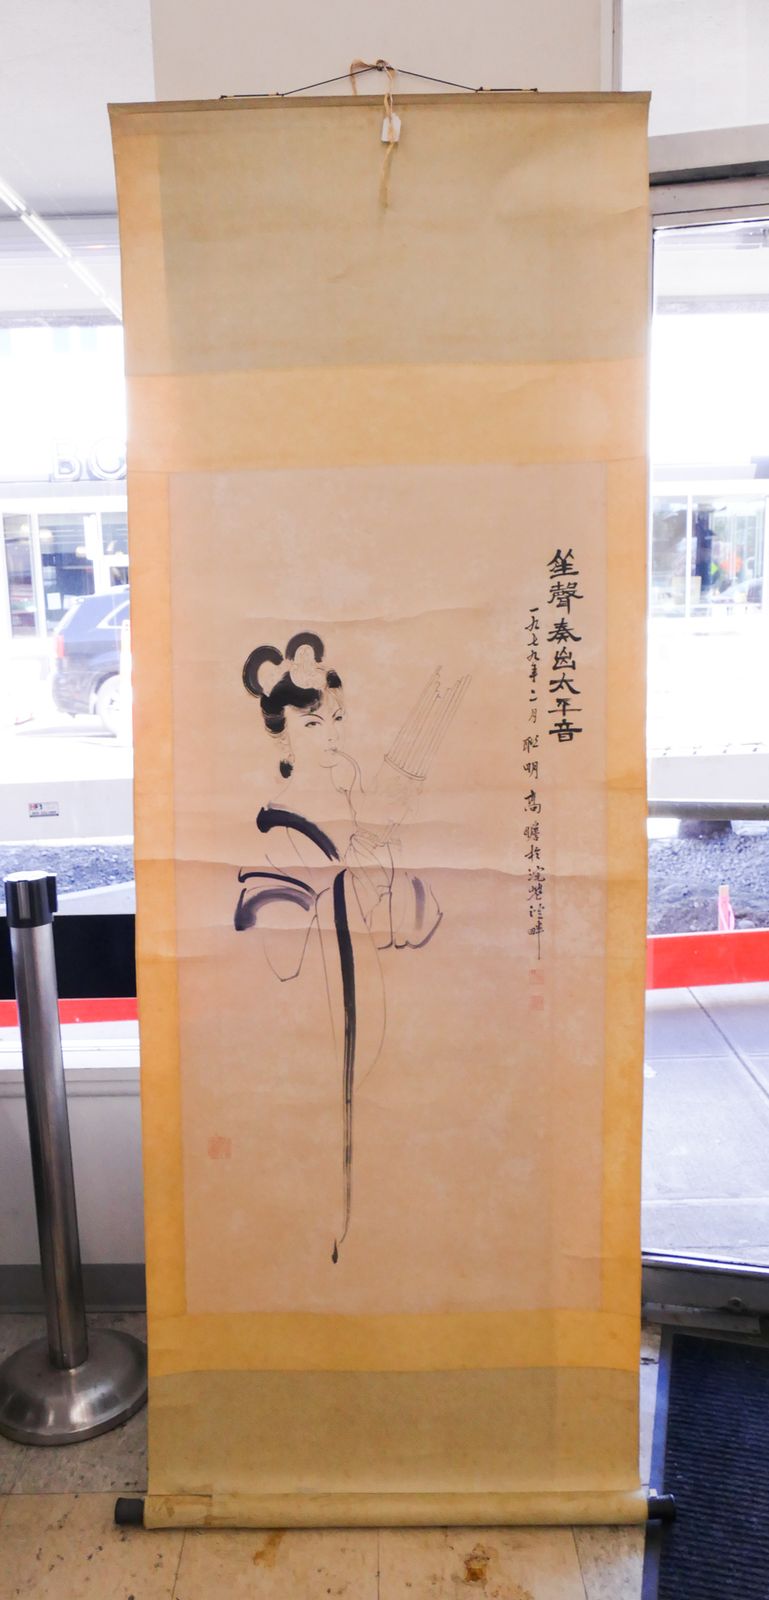 笙聲奏出太平音
一九七九年二月 聰明 高 於浣花溪畔
BO